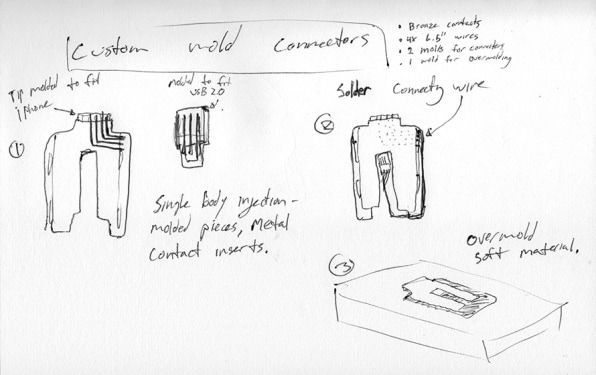 Custom mold Connectors
• Bronze contacts
• 4x 6.5" wires
• 2 molds for connectors
• 1 mold for overmolding
Tip molded to fit
iPhone
molded to fit
USB 2.0
Solder Connecty wire
1
2
Single body injection-
molded pieces, Mental
Contact inserts.
3
Overmold
soft material.